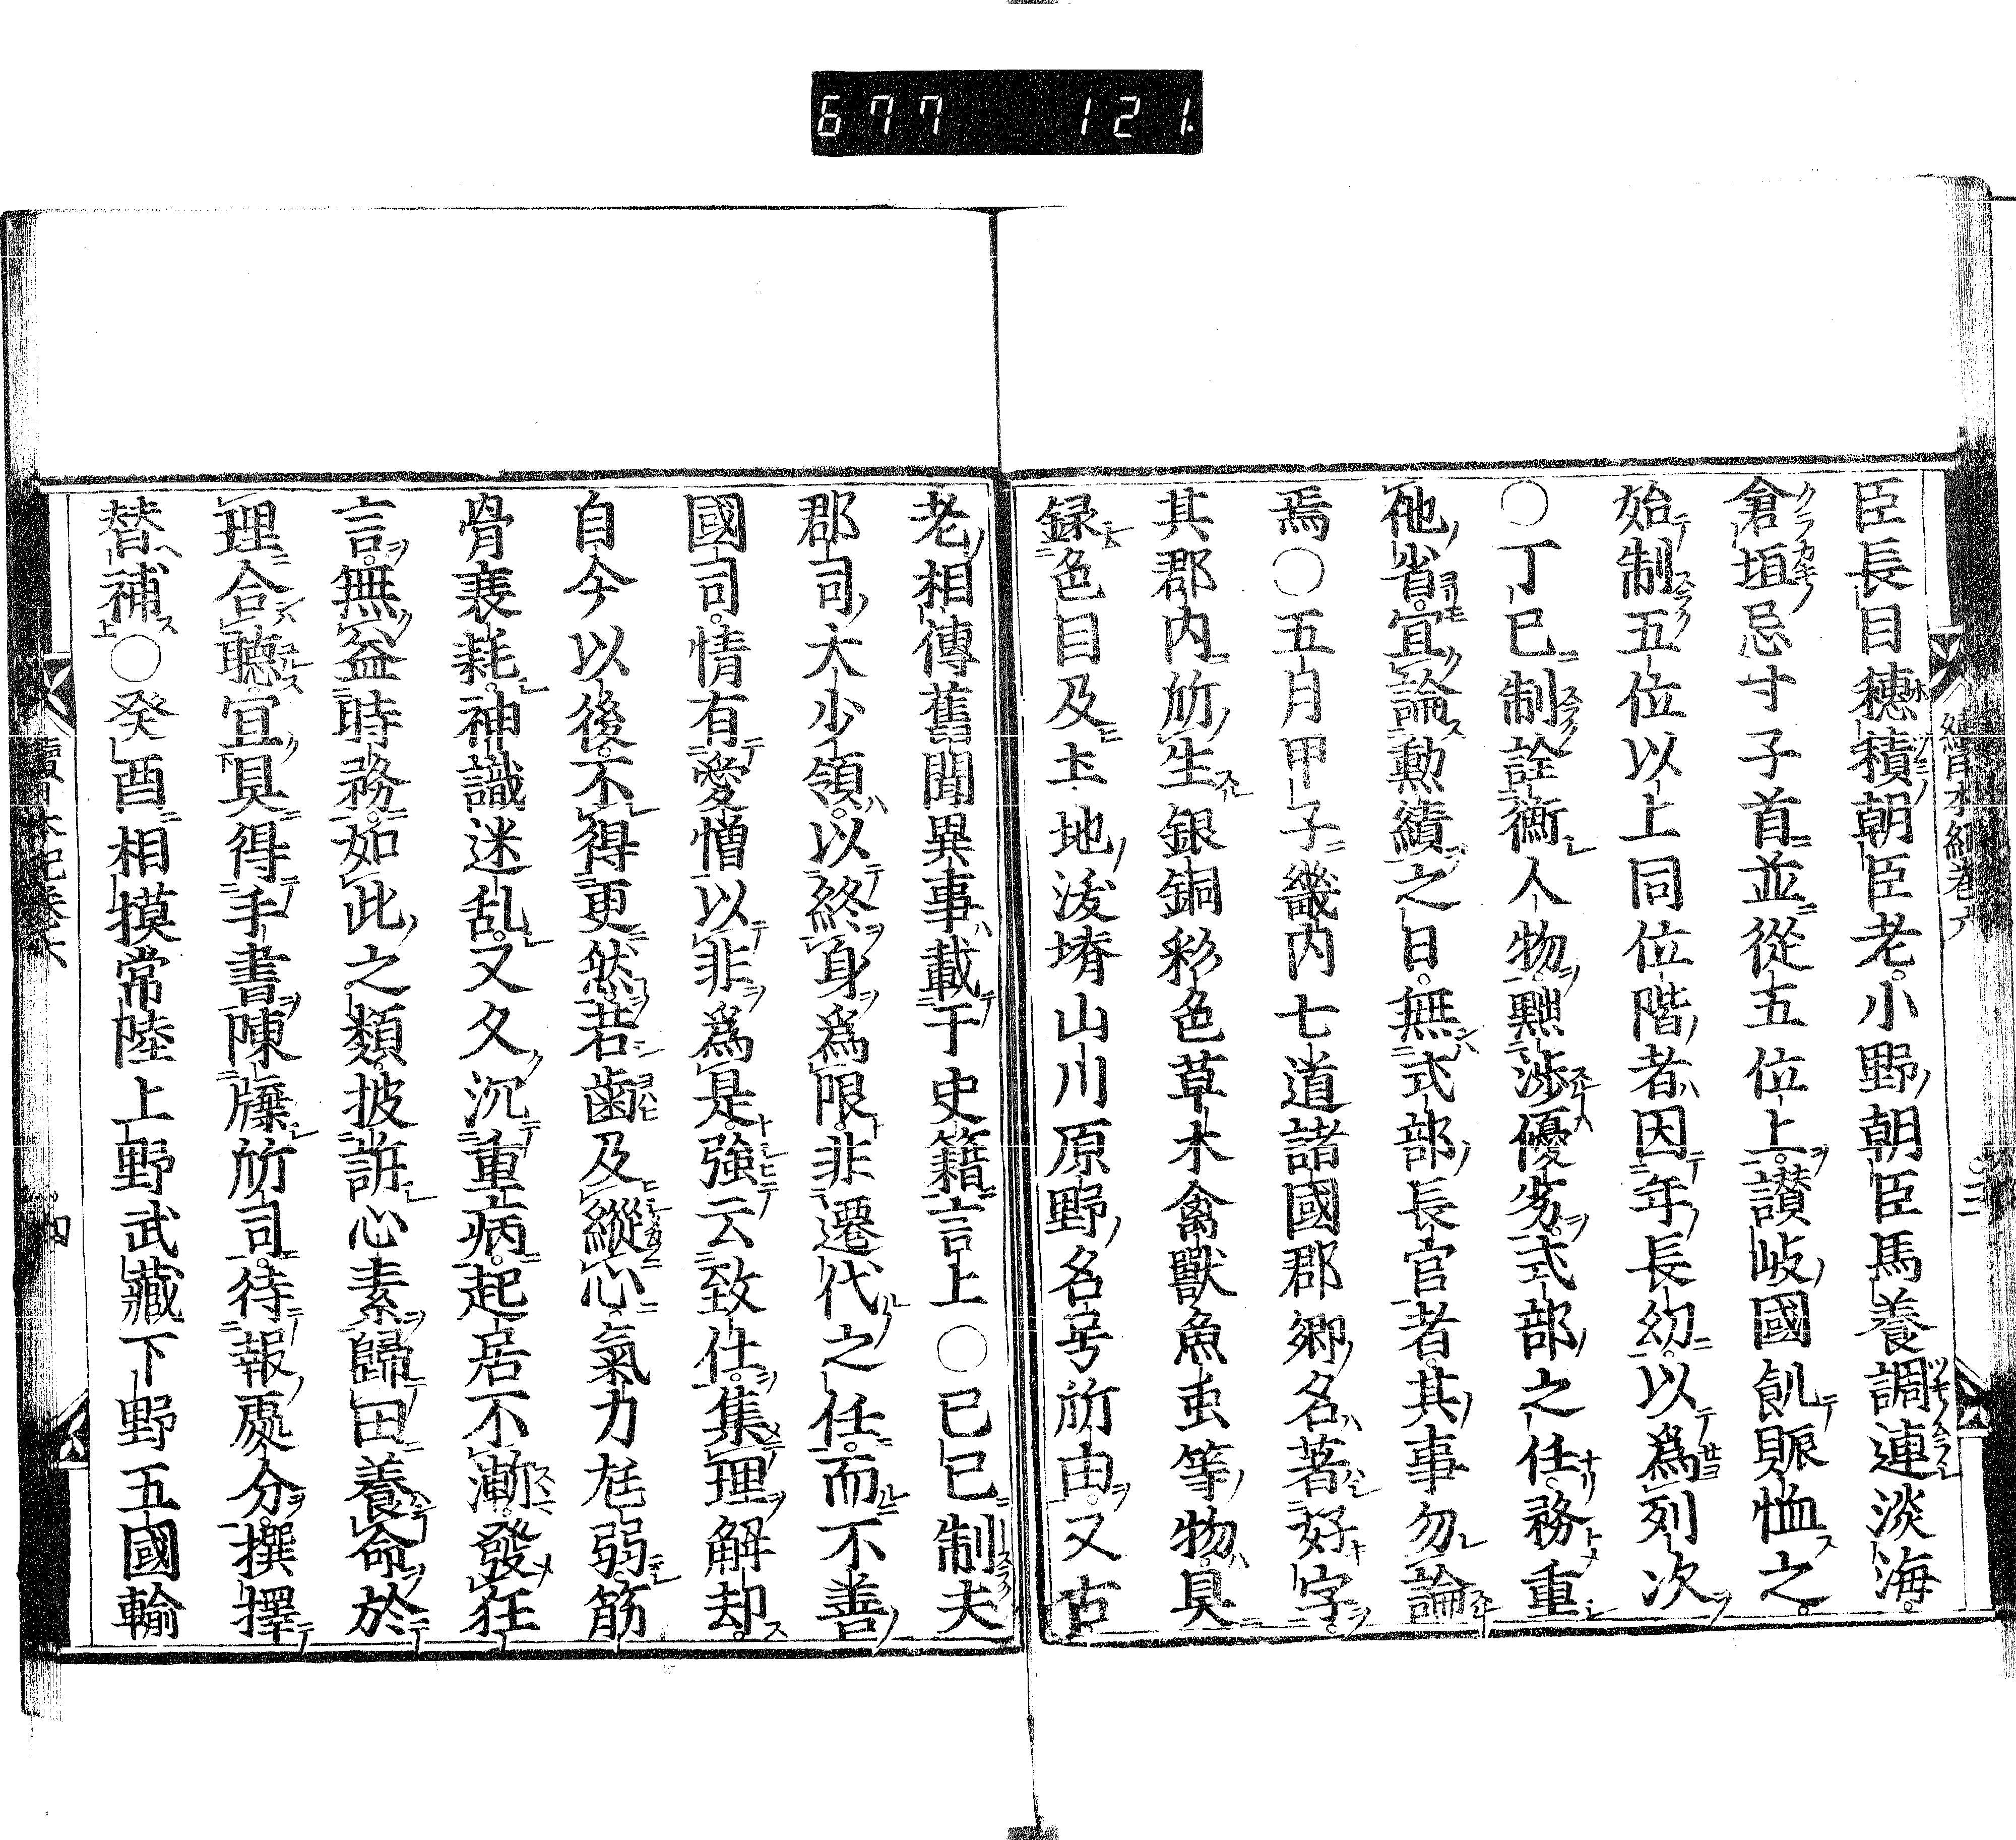 677 121
臣長目穗積朝臣老。小野朝臣馬養調連淡海。
倉垣忌寸子首並從五位上。讃岐國飢賑恤之。
始制五位以上同位階者因年長幼。以爲列次
○丁巳制詮衡人物。黜渉優劣。式部之任。務重
他省。宜論勲績之日。無式部長官者。其事勿論
焉○五月甲子畿内七道諸國郡郷名著好字。
其郡内所生銀銅彩色草木禽獸魚虫等物。具
録色目及土地沃塉山川原野名号所由。又古
老相傳舊聞異事載于史籍言上○己巳制夫
郡司大少領。以終身爲限。非遷代之任。而不善
國司。情有愛憎以非爲是。強云致仕。集理解却。
自今以後。不得更然。若齒及縱心。氣力尪弱。筋
骨衰耗。神識迷乱。又久沉重病。起居不漸。發狂
言。無益時務。如此之類。披訴心素歸田養命於
理合聽。宜具得手書陳牒所司。待報處分。撰擇
替補○癸酉相摸常陸上野武藏下野五國輸
續日本紀卷六 三
續日本紀卷六 四